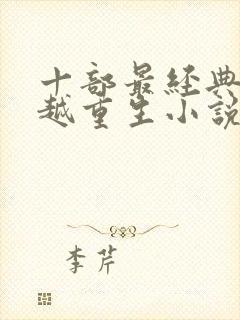 十部最经典
越重生小说
李芹